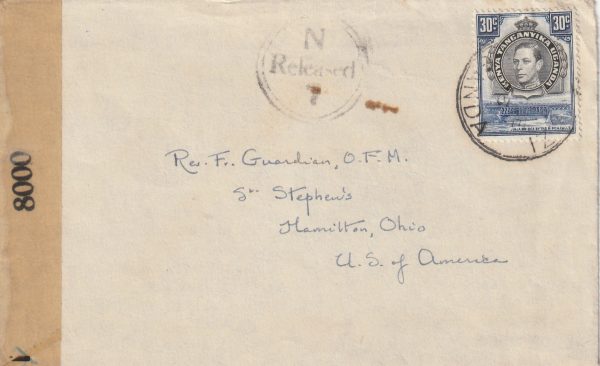 N
Released
7
30c 30c
KENYA TANGANYIKA UGANDA
Rev. Fr. Guardian, O.F.M.
St. Stephen's
Hamilton, Ohio
U.S. of America
8000